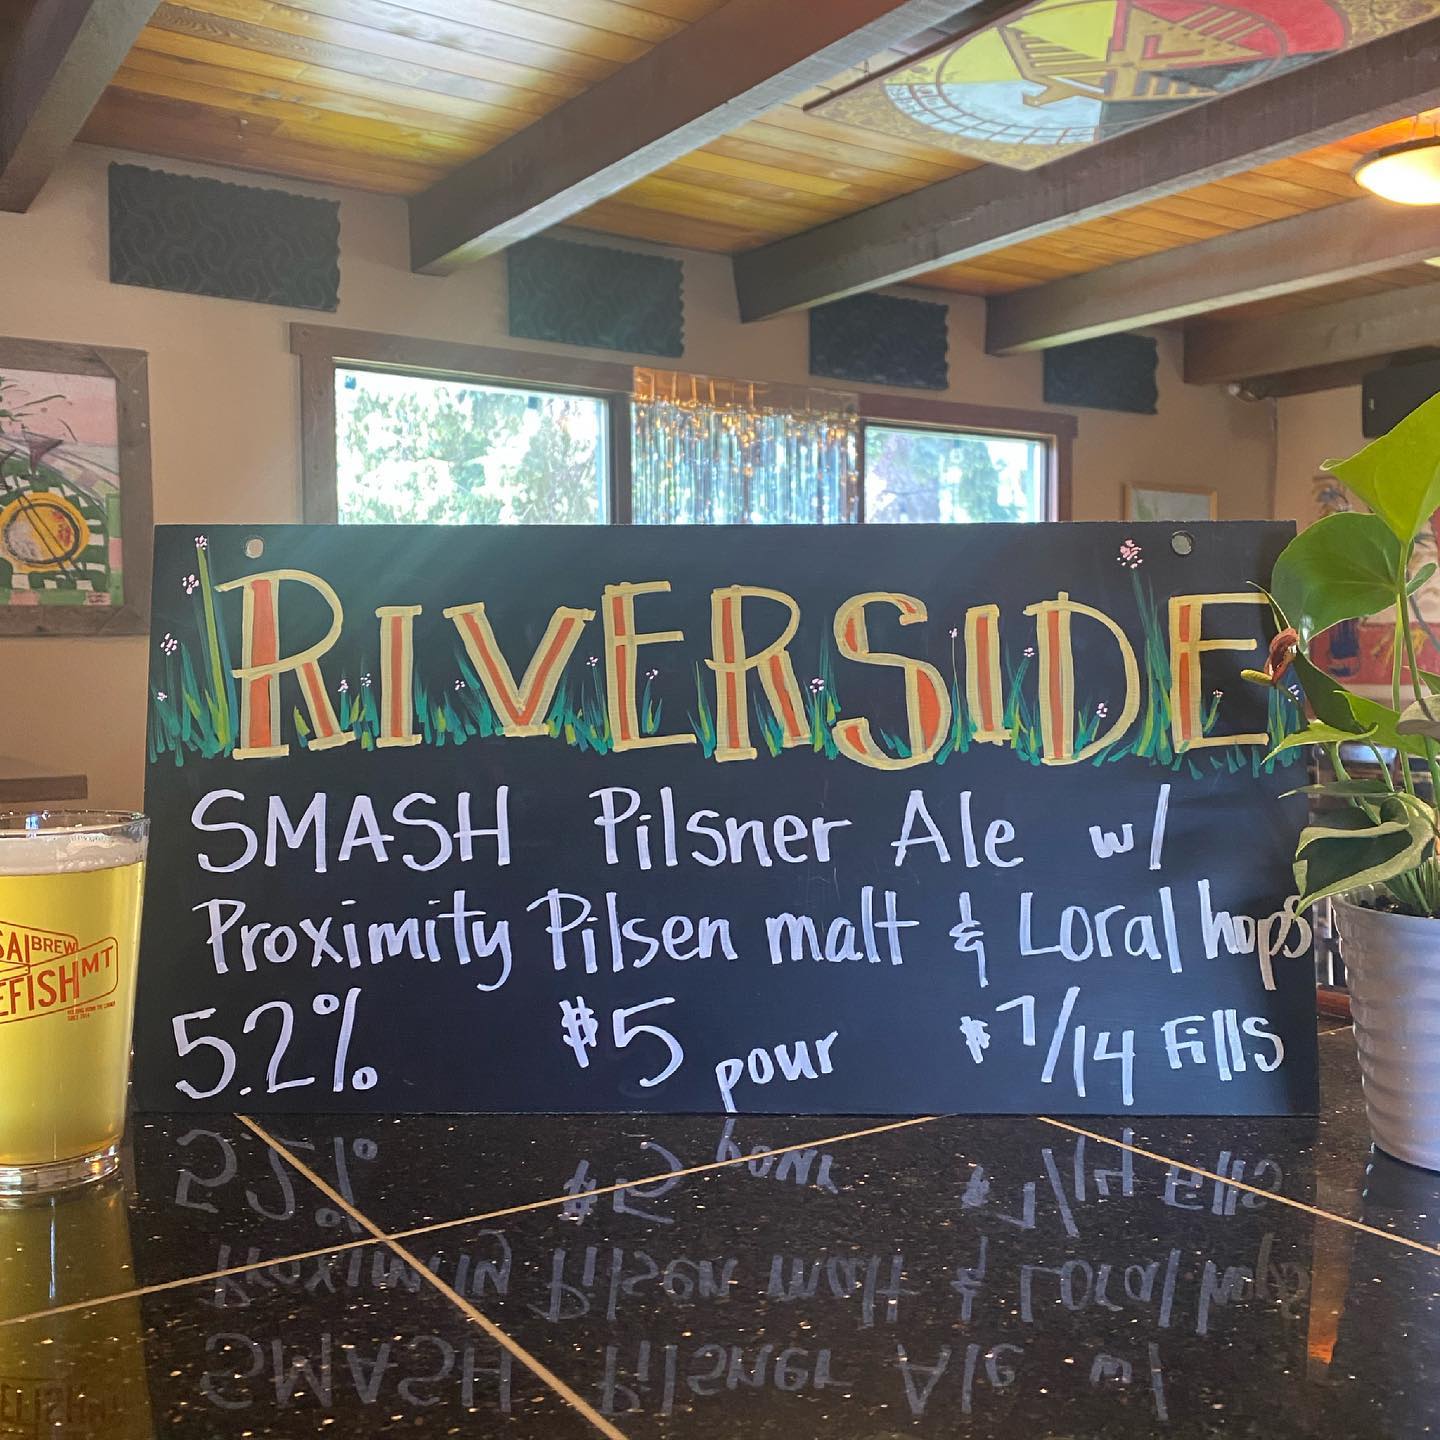 RIVERSIDE
SMASH Pilsner Ale w/
Proximity Pilsen malt & Loral hops
5.2% $5 pour $7/14 Fills
SAI BREW
EFISH MT
SINCE 2014